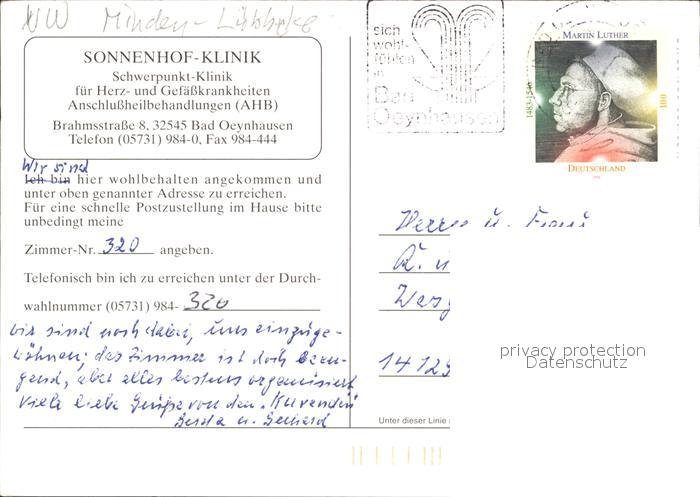 NW Minden-Lübbecke
SONNENHOF-KLINIK
Schwerpunkt-Klinik
für Herz- und Gefäßkrankheiten
Anschlußheilbehandlungen (AHB)
Brahmsstraße 8, 32545 Bad Oeynhausen
Telefon (05731) 984-0, Fax 984-444
Wir sind
Ich bin hier wohlbehalten angekommen und
unter oben genannter Adresse zu erreichen.
Für eine schnelle Postzustellung im Hause bitte
unbedingt meine
Zimmer-Nr. 320 angeben.
Telefonisch bin ich zu erreichen unter der Durch-
wahlnummer (05731) 984- 320
wir sind noch dabei, uns einzuge-
wöhnen; das Zimmer ist doch been-
gend, aber alles bestens organisiert
Viele liebe Grüße von den "Kurenden"
Gerda u. Gerhard
sich
wohl-
fühlen
in
Bad
Oeynhausen
MARTIN LUTHER
1483-1546
100
DEUTSCHLAND
Herrn u. Frau
14129
privacy protection
Datenschutz
Unter dieser Linie